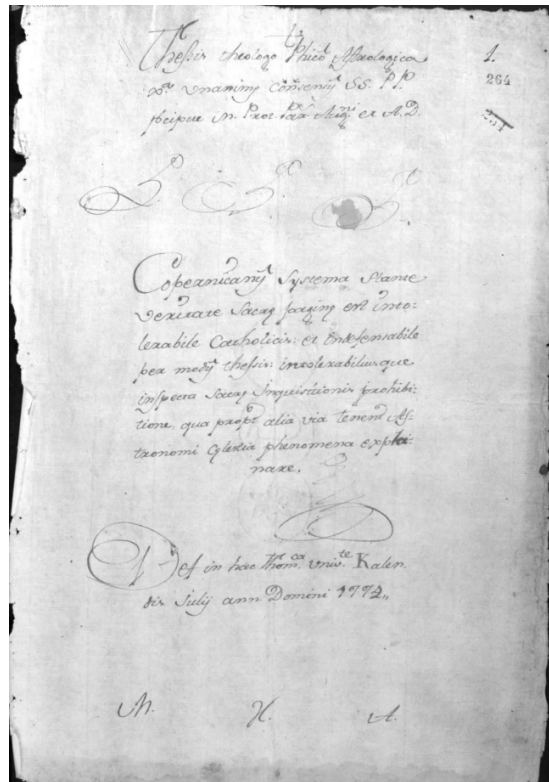 Thessis theologo Phico Astrologica
unanimy Consensy SS. P.P.
pcipue in
et A.D.
1.
264
Copernicany Systema Stante
veritate Sacry paginy est into-
lerabile Catholicis: et indefensabile
per mody thessis: intolerabiliusque
inspecta Sacry Inquisitionis prohibi-
tione, qua propt alia via tenent As-
tronomi Cylestia phenomena expla-
nare.
Def in hac Thom.ca Univ.te Kalen
dis Julij ann Domini 1774,,
M. H. A.